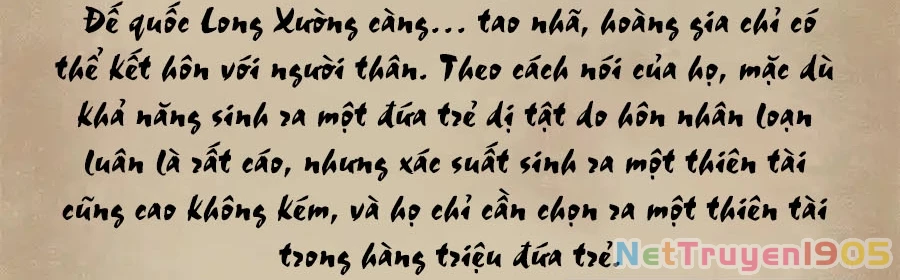 Đế quốc Long Xường càng... tao nhã, hoàng gia chỉ có
thể kết hôn với người thân. Theo cách nói của họ, mặc dù
khả năng sinh ra một đứa trẻ dị tật do hôn nhân loạn
luân là rất cáo, nhưng xác suất sinh ra một thiên tài
cũng cao không kém, và họ chỉ cần chọn ra một thiên tài
trong hàng triệu đứa trẻ.
NetTruyen1905